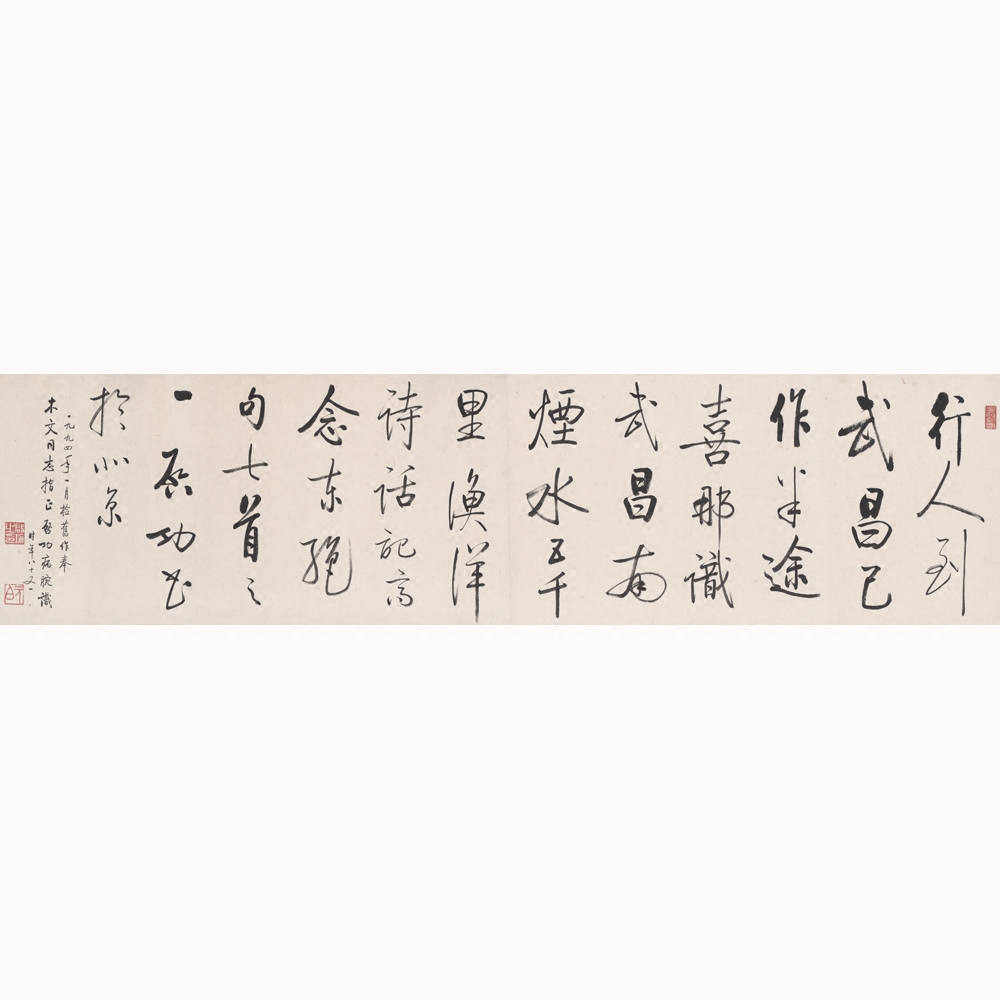 行人到
武昌已
作半途
喜那識
武昌南
煙水五千
里漁洋
詩話記高
念東絕
句七首之
一启功書
於北京
一九九四年一月檢舊作奉
木文同志指正启功病腕識
時年八十又一